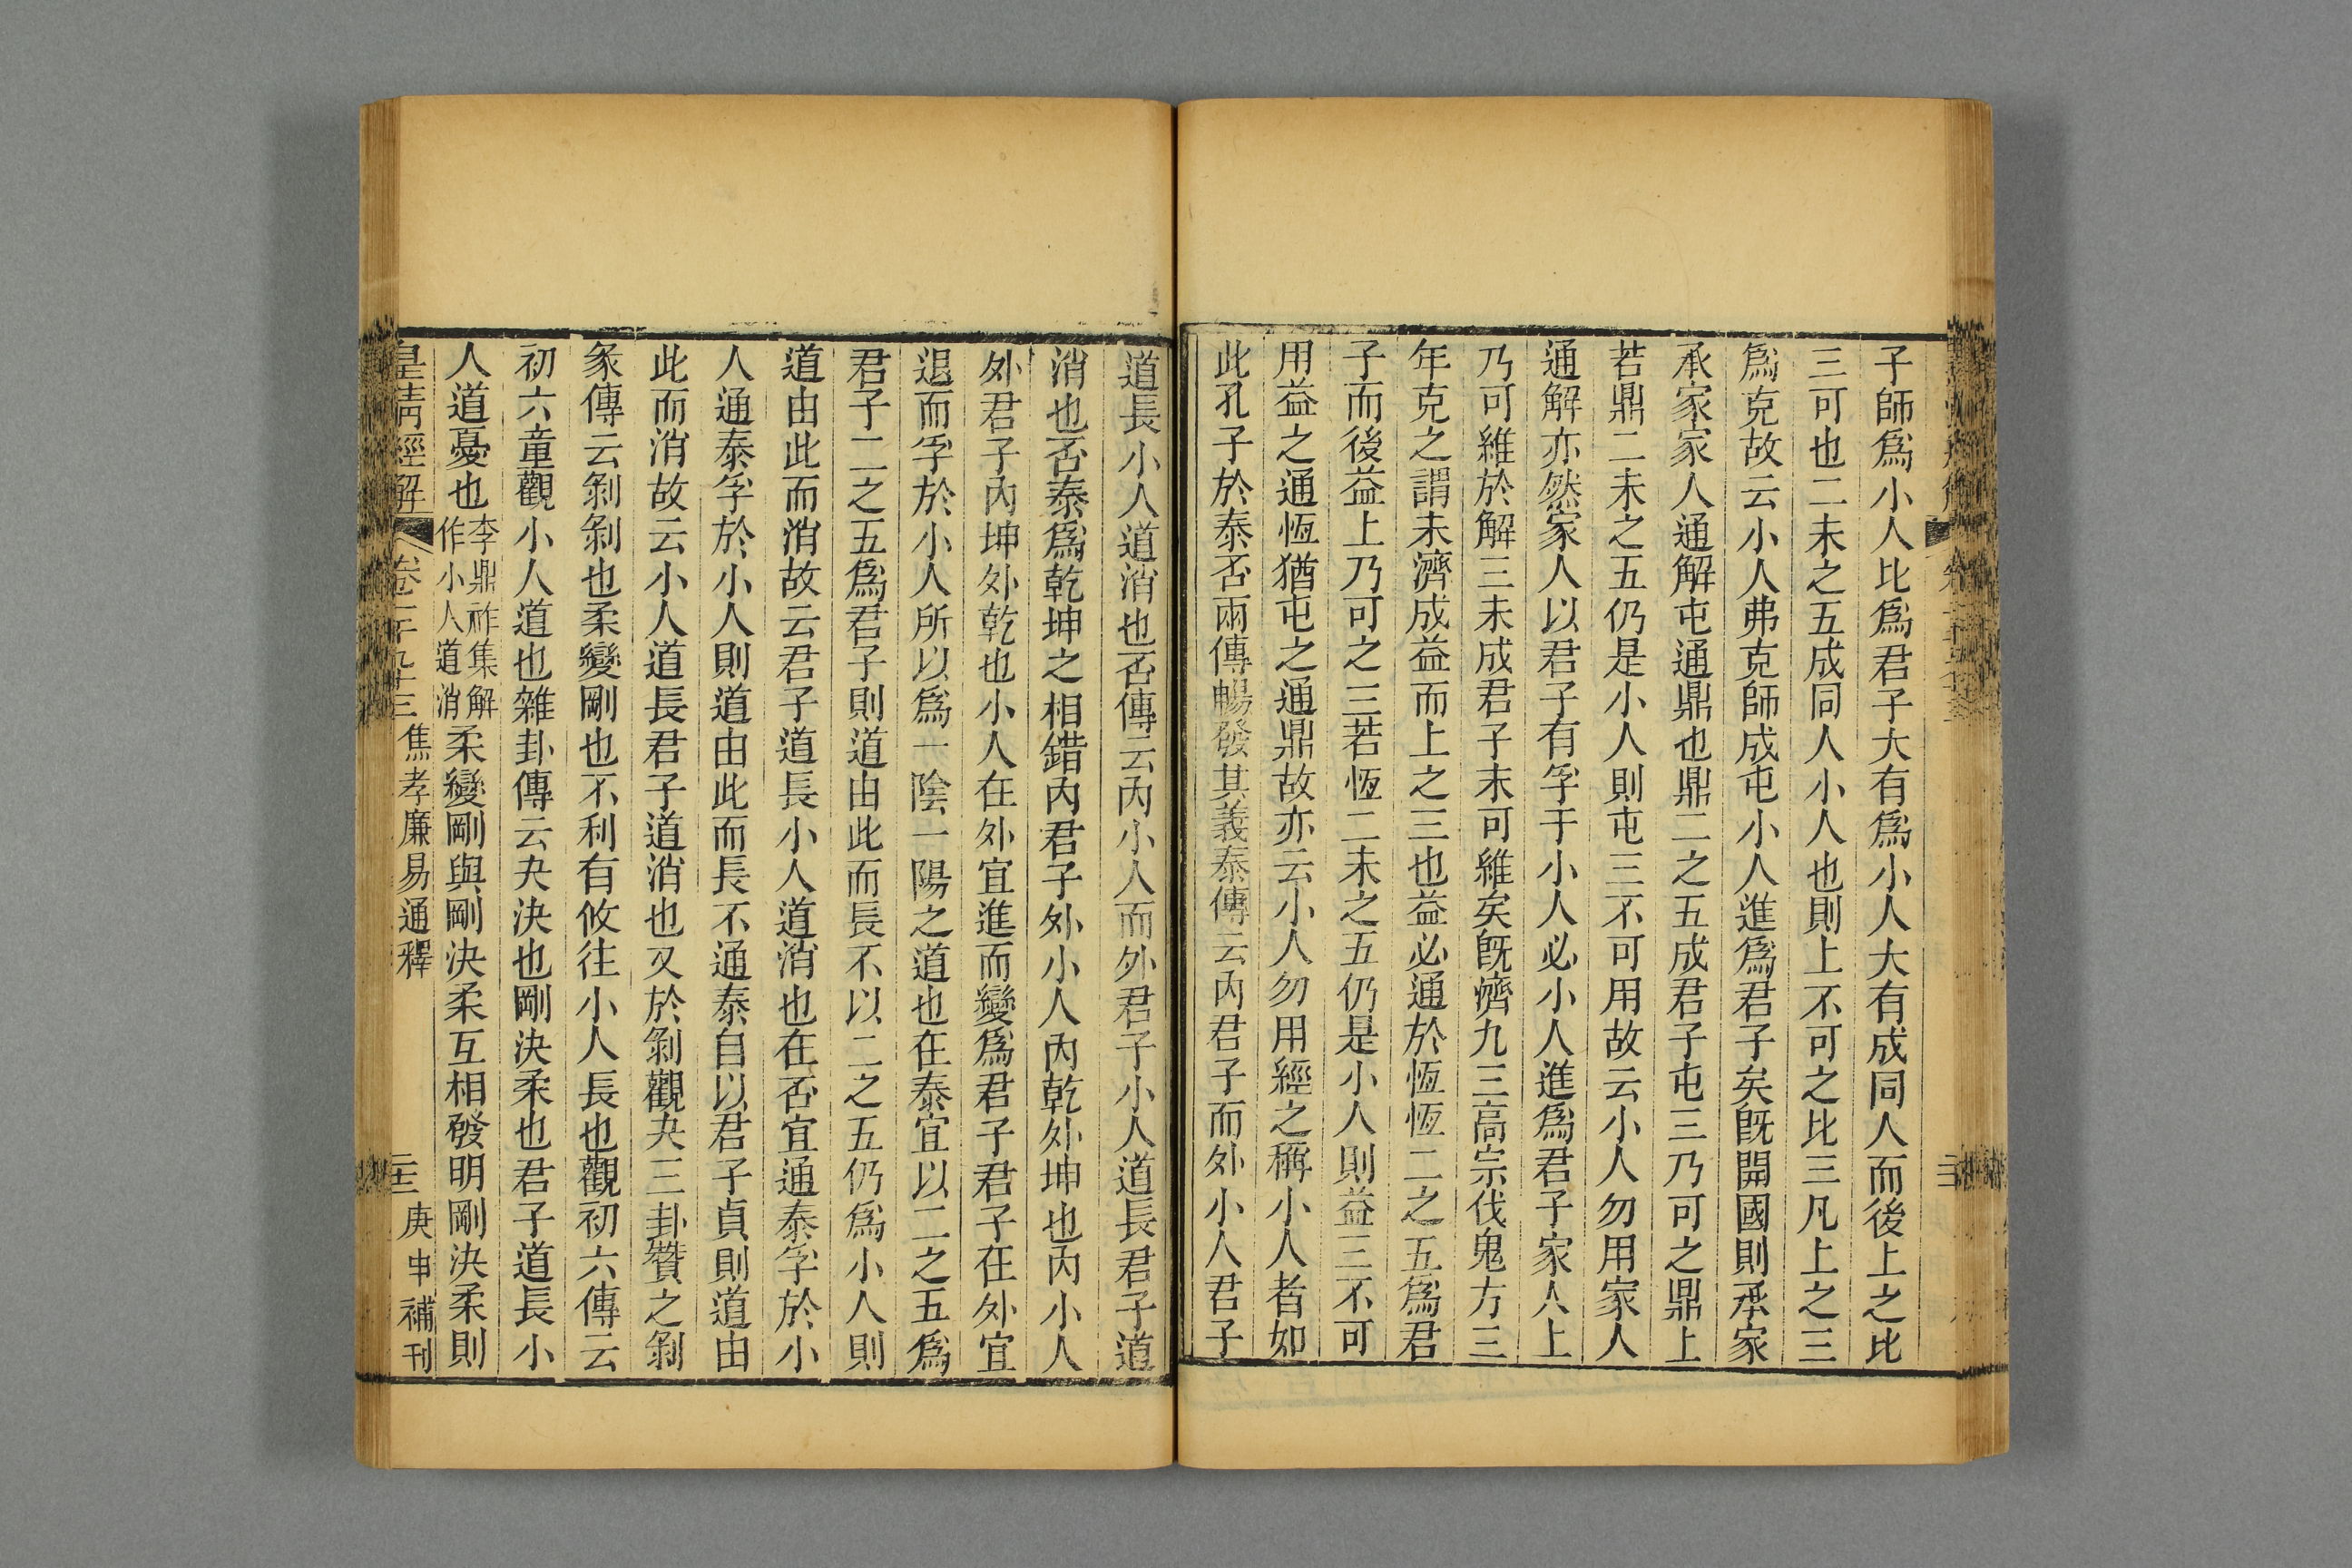 子師爲小人比爲君子大有爲小人大有成同人而後上之比
三可也二未之五成同人小人也則上不可之比三凡上之三
爲克故云小人弗克師成屯小人進爲君子矣旣開國則承家
承家家人通解屯通鼎也鼎二之五成君子屯三乃可之鼎上
若鼎二未之五仍是小人則屯三不可用故云小人勿用家人
通解亦然家人以君子有孚于小人必小人進爲君子家人上
乃可維於解三未成君子末可維矣旣濟九三高宗伐鬼方三
年克之謂未濟成益而上之三也益必通於恆恆二之五爲君
子而後益上乃可之三若恆二未之五仍是小人則益三不可
用益之通恆猶屯之通鼎故亦云小人勿用經之稱小人者如
此孔子於泰否兩傳暢發其義泰傳云內君子而外小人君子
道長小人道消也否傳云內小人而外君子小人道長君子道
消也否泰爲乾坤之相錯內君子外小人內乾外坤也內小人
外君子內坤外乾也小人在外宜進而變爲君子君子在外宜
退而孚於小人所以爲一陰一陽之道也在泰宜以二之五爲
君子二之五爲君子則道由此而長不以二之五仍爲小人則
道由此而消故云君子道長小人道消也在否宜通泰孚於小
人通泰孚於小人則道由此而長不通泰自以君子貞則道由
此而消故云小人道長君子道消也又於剝觀夬三卦贊之剝
彖傳云剝剝也柔變剛也不利有攸往小人長也觀初六傳云
初六童觀小人道也雜卦傳云夬決也剛決柔也君子道長小
人道憂也李鼎祚集解作小人道消柔變剛與剛決柔互相發明剛決柔則
皇清經解 卷一千九十三 焦孝廉易通釋 庚申補刊